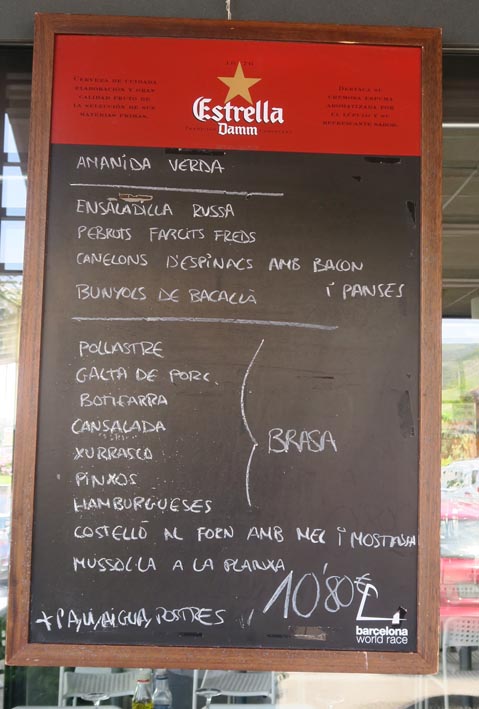 1876
CERVEZA DE CUIDADA
ELABORACIÓN Y GRAN
CALIDAD FRUTO DE
LA SELECCIÓN DE SUS
MATERIAS PRIMAS.
Estrella
Damm
DESTACA SU
CREMOSA ESPUMA
AROMATIZADA POR
EL LÚPULO Y SU
REFRESCANTE SABOR.
AMANIDA VERDA
ENSALADILLA RUSSA
PEBROTS FARCITS FREDS
CANELONS D'ESPINACS AMB BACON
I PANSES
BUNYOLS DE BACALLÀ
POLLASTRE
GALTA DE PORC
BOTIFARRA
CANSALADA
XURRASCO
PINXOS
HAMBURGUESES
BRASA
COSTELLÓ AL FORN AMB MEL I MOSTASSA
MUSSOL·LA A LA PLANXA
10'80€
+ PA, VI, AIGUA, POSTRES
barcelona
world race